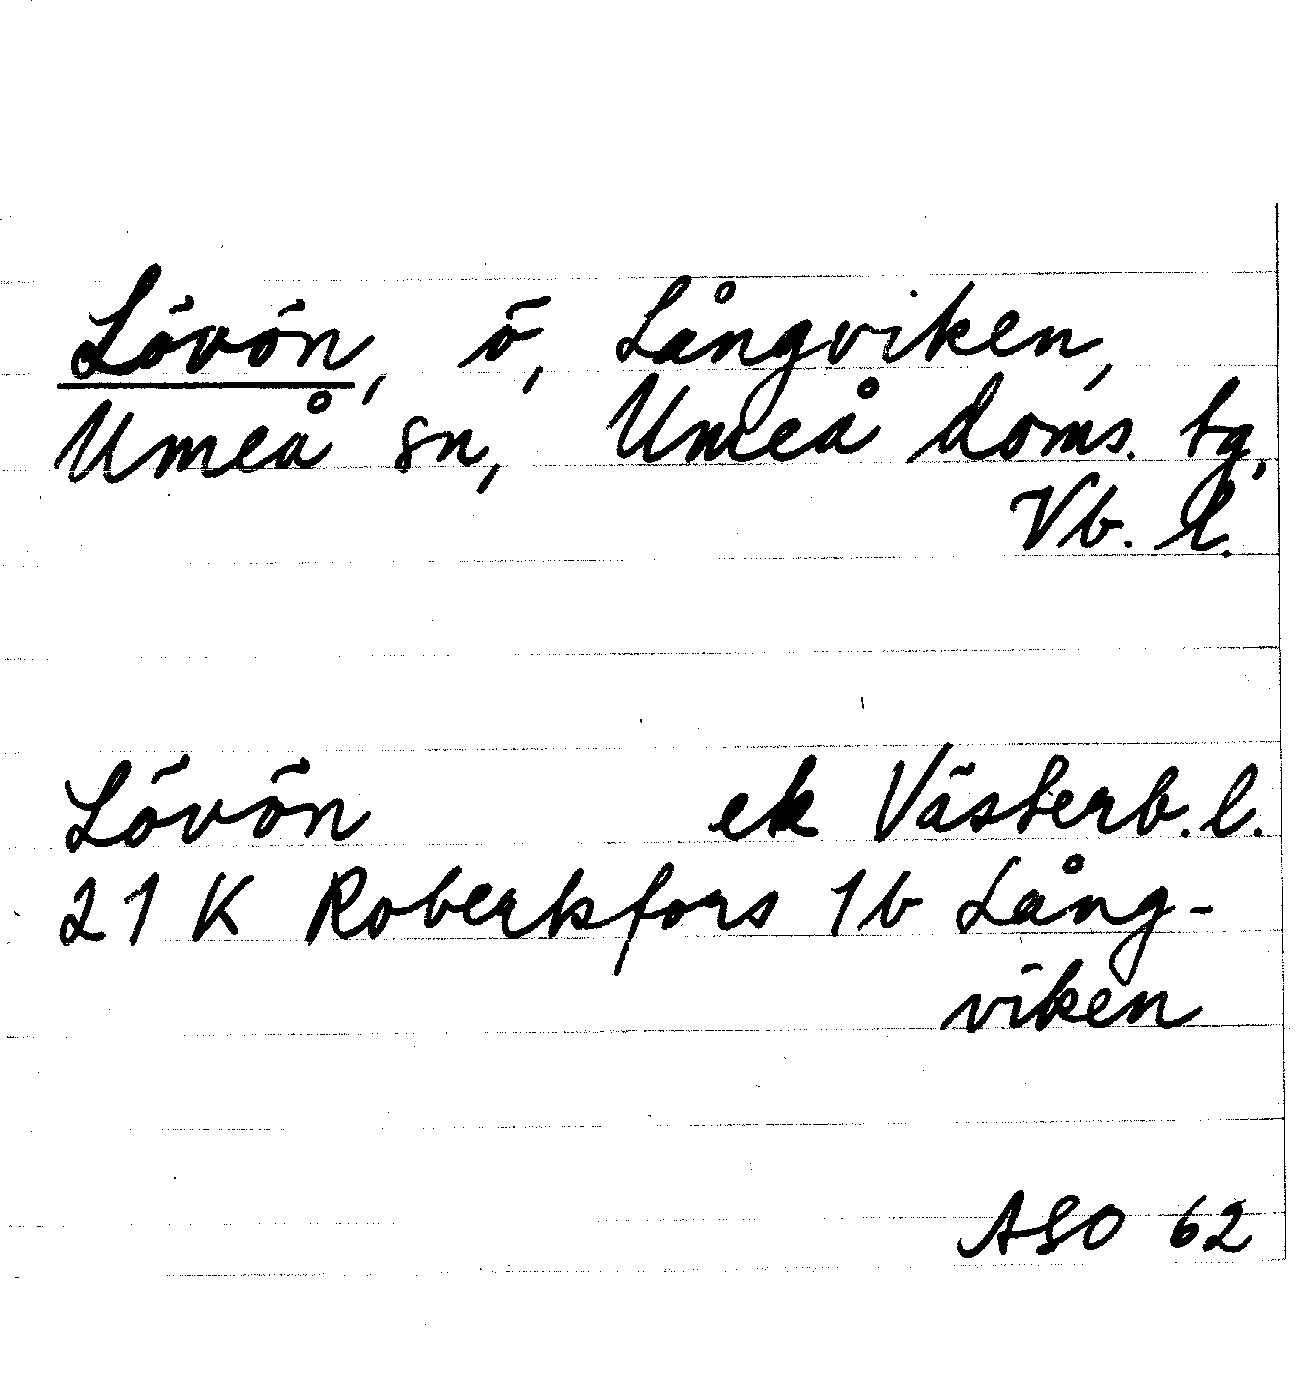 Lövön, ö, Långviken,
Umeå sn, Umeå doms. tg,
Vb. l.
Lövön ek Västerb. l.
21 K Robertsfors 1b Lång-
viken
ASO 62